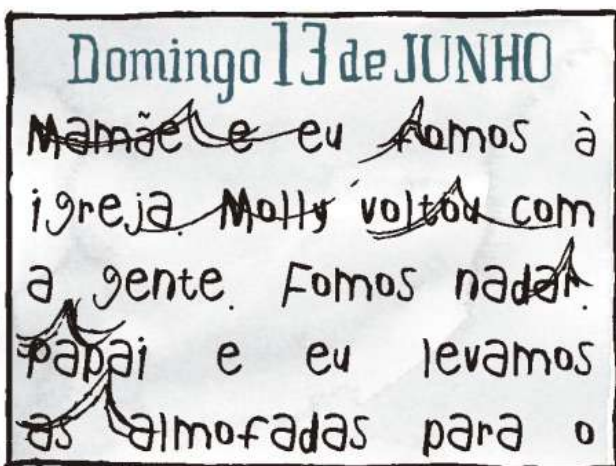 Domingo 13 de JUNHO
Mamãe e eu fomos à
igreja. Molly voltou com
a gente. Fomos nadar.
papai e eu levamos
as almofadas para o